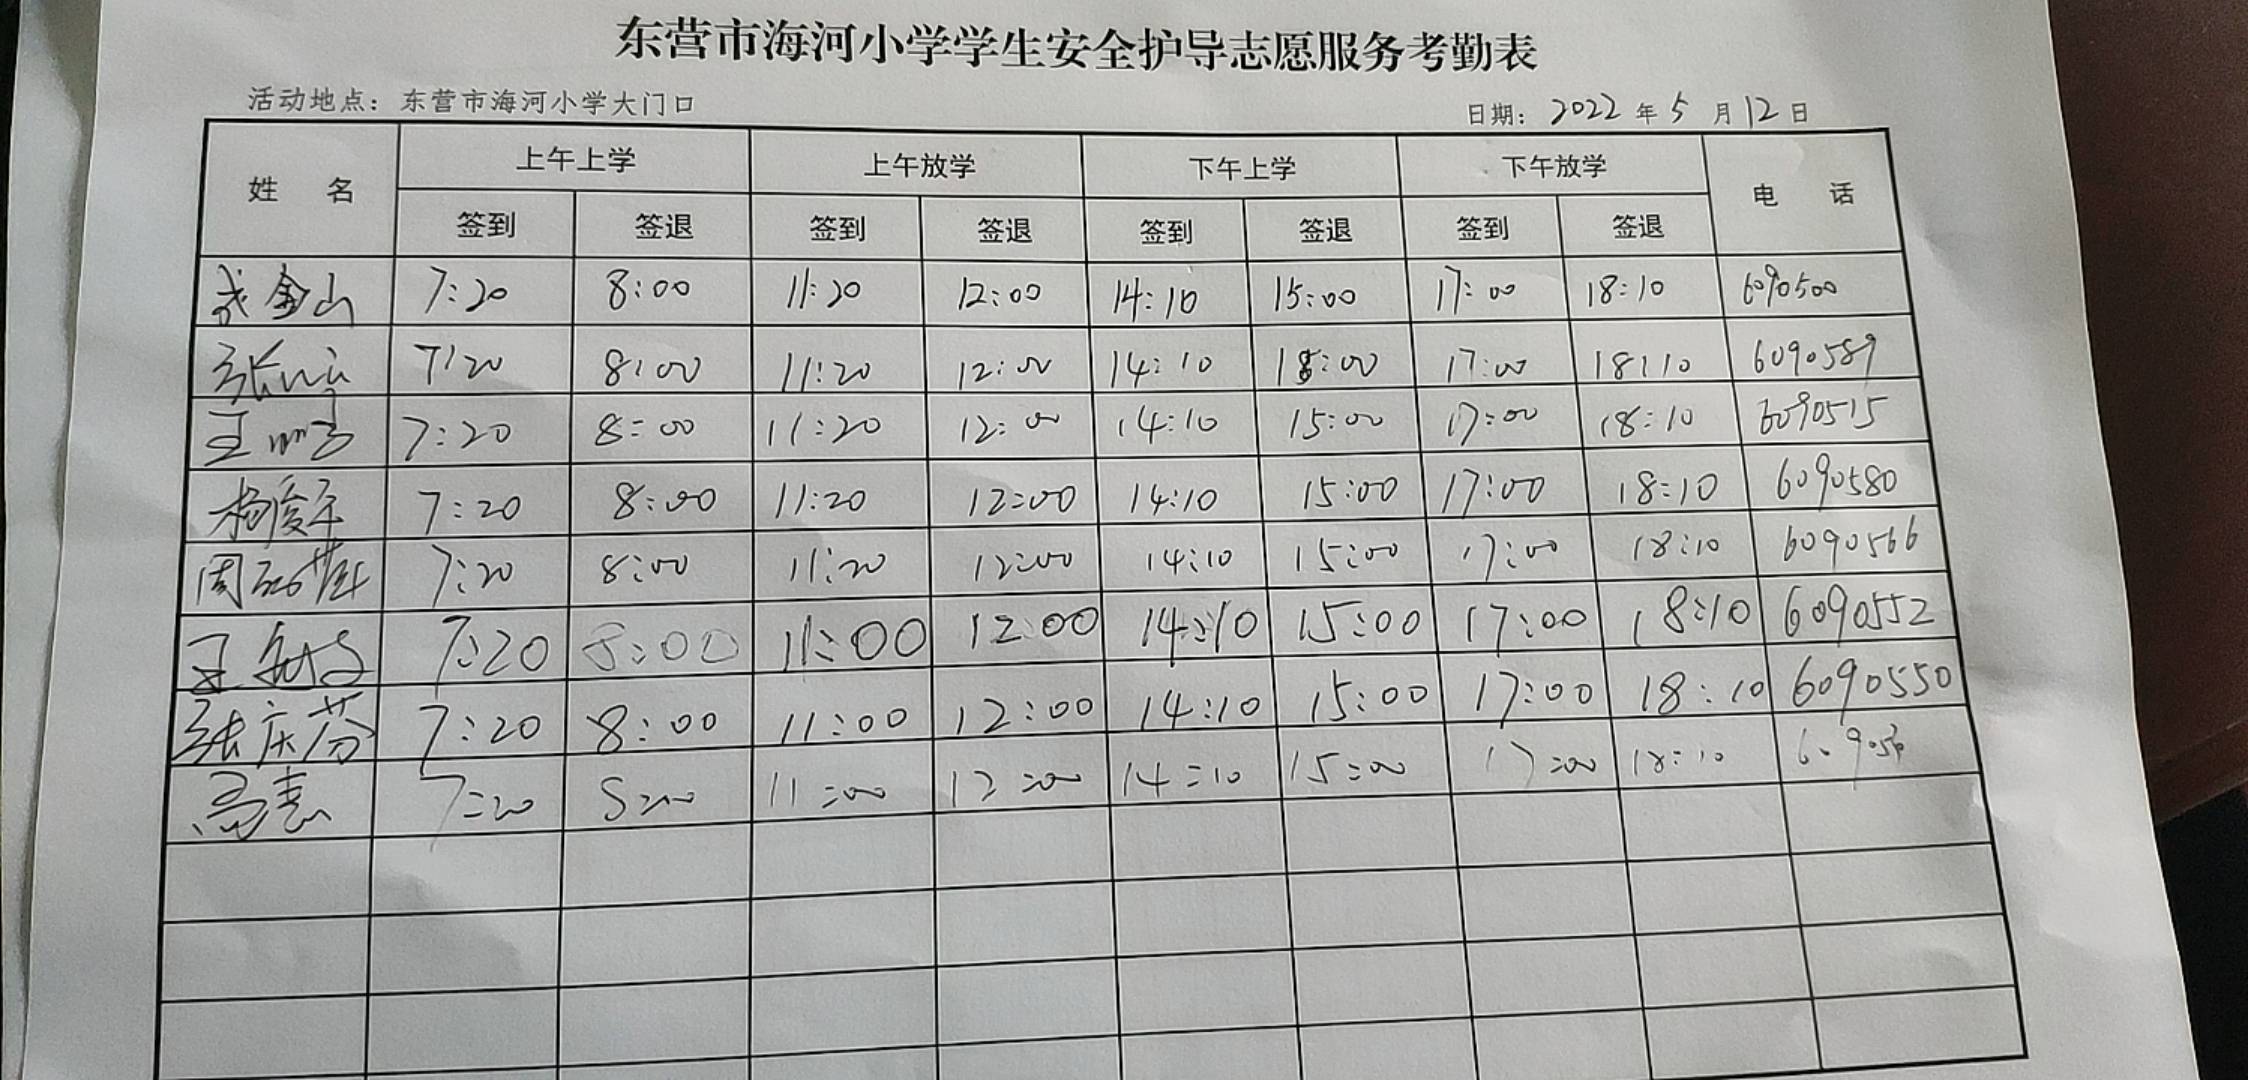 东营市海河小学学生安全护导志愿服务考勤表
活动地点：东营市海河小学大门口 日期：2022年5月12日
姓名 上午上学 上午放学 下午上学 下午放学 电话
签到 签退 签到 签退 签到 签退 签到 签退
金山 7:20 8:00 11:20 12:00 14:10 15:00 17:00 18:10 6090500
张 7:20 8:00 11:20 12:00 14:10 15:00 17:00 18:10 6090589
王 7:20 8:00 11:20 12:00 14:10 15:00 17:00 18:10 6090515
杨俊 7:20 8:00 11:20 12:00 14:10 15:00 17:00 18:10 6090580
周 7:20 8:00 11:20 12:00 14:10 15:00 17:00 18:10 6090566
王 7:20 8:00 11:00 12:00 14:10 15:00 17:00 18:10 6090552
张庆芬 7:20 8:00 11:00 12:00 14:10 15:00 17:00 18:10 6090550
7:20 8:00 11:00 12:00 14:10 15:00 17:00 18:10